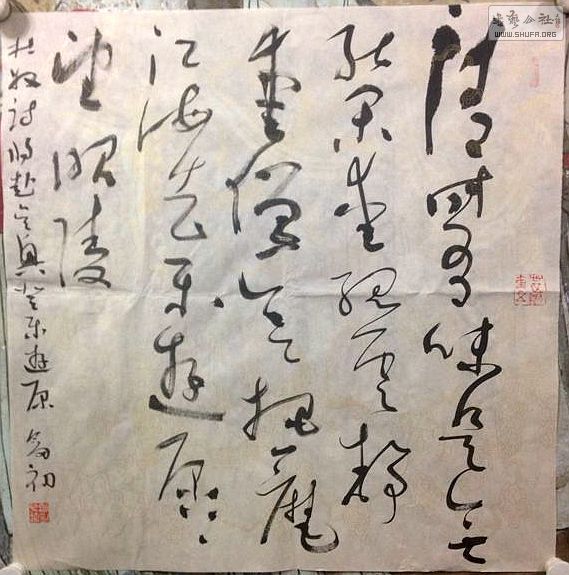 清時有味是无
能閑愛孤雲静
愛僧欲把一麾
江海去樂遊原上
望昭陵
杜牧詩将赴吳興登樂遊原 初
書藝公社
WWW.SHUFA.ORG